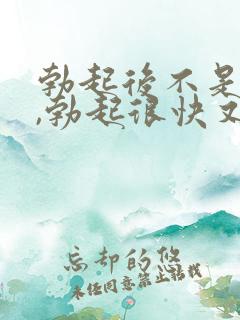 勃起後不是
,勃起很快又
忘却的悠
未经同意禁止转载